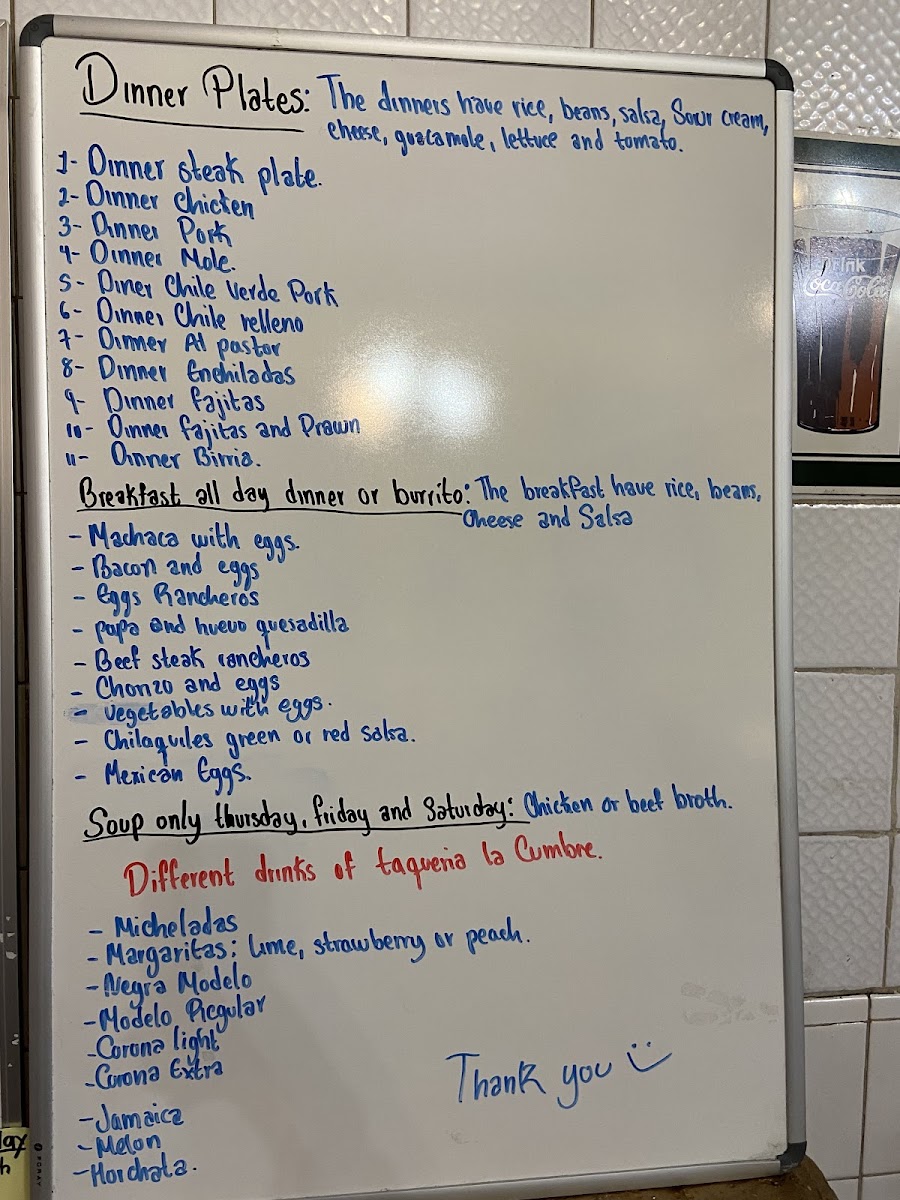 Dinner Plates: The dinners have rice, beans, salsa, Sour cream,
cheese, guacamole, lettuce and tomato.
1- Dinner steak plate.
2- Dinner Chicken
3- Dinner Pork
4- Dinner Mole.
5- Diner Chile Verde Pork
6- Dinner Chile relleno
7- Dinner Al pastor
8- Dinner Enchiladas
9- Dinner fajitas
10- Dinner fajitas and Prawn
11- Dinner Birria.
Breakfast all day dinner or burrito: The breakfast have rice, beans,
Cheese and Salsa
- Machaca with eggs.
- Bacon and eggs
- Eggs Rancheros
- papa and huevo quesadilla
- Beef steak rancheros
- Chorizo and eggs
- vegetables with eggs.
- Chilaquiles green or red salsa.
- Mexican Eggs.
Soup only thursday, friday and Saturday: Chicken or beef broth.
Different drinks of taqueria la Cumbre.
- Micheladas
- Margaritas: lime, strawberry or peach.
- Negra Modelo
- Modelo Regular
- Corona light
- Corona Extra
- Jamaica
- Melon
- Horchata.
Thank you
Drink
Coca-Cola